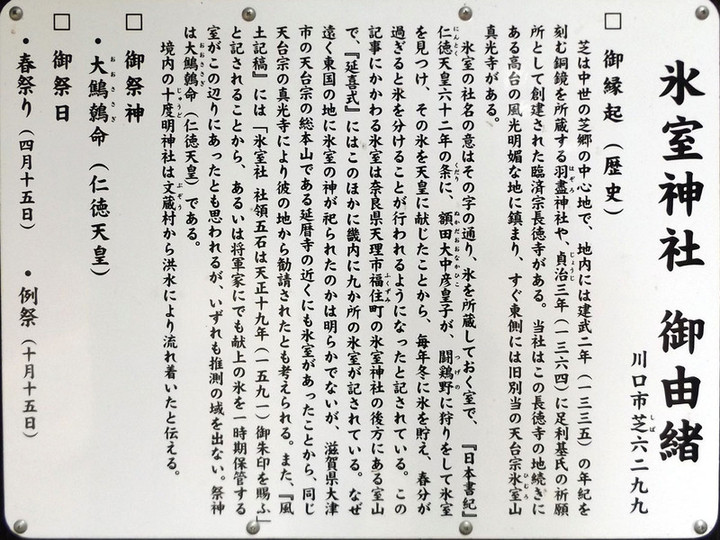 氷室神社 御由緒
川口市芝六二九九
□ 御縁起（歴史）
芝は中世の芝郷の中心地で、地内には建武二年（一三三五）の年紀を
刻む銅鏡を所蔵する羽盡神社や、貞治三年（一三六四）に足利基氏の祈願
所として創建された臨済宗長徳寺がある。当社はこの長徳寺の地続きに
ある高台の風光明媚な地に鎮まり、すぐ東側には旧別当の天台宗氷室山
真光寺がある。
氷室の社名の意はその字の通り、氷を所蔵しておく室で、『日本書紀』
仁徳天皇六十二年の条に、額田大中彦皇子が、闘鶏野に狩りをして氷室
を見つけ、その氷を天皇に献じたことから、毎年冬に氷を貯え、春分が
過ぎると氷を分けることが行われるようになったと記されている。この
記事にかかわる氷室は奈良県天理市福住町の氷室神社の後方にある室山
で、『延喜式』にはこのほかに畿内に九か所の氷室が記されている。なぜ
遠く東国の地に氷室の神が祀られたのかは明らかでないが、滋賀県大津
市の天台宗の総本山である延暦寺の近くにも氷室があったことから、同じ
天台宗の真光寺により彼の地から勧請されたとも考えられる。また、『風
土記稿』には「氷室社 社領五石は天正十九年（一五九一）御朱印を賜ふ」
と記されることから、あるいは将軍家にでも献上の氷を一時期保管する
室がこの辺りにあったとも思われるが、いずれも推測の域を出ない。祭神
は大鷦鷯命（仁徳天皇）である。
境内の十度明神社は文蔵村から洪水により流れ着いたと伝える。
□ 御祭神
・大鷦鷯命（仁徳天皇）
□ 御祭日
・春祭り（四月十五日） ・例祭（十月十五日）